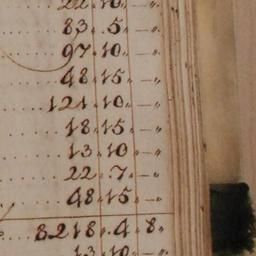 22. 10. — "
83. 5. — "
97. 10. — "
48. 15. — "
121. 10. — "
18. 15. — "
13. 10. — "
22. 7. — "
48. 15. — "
8218. 4. 8.
13. 10. — "